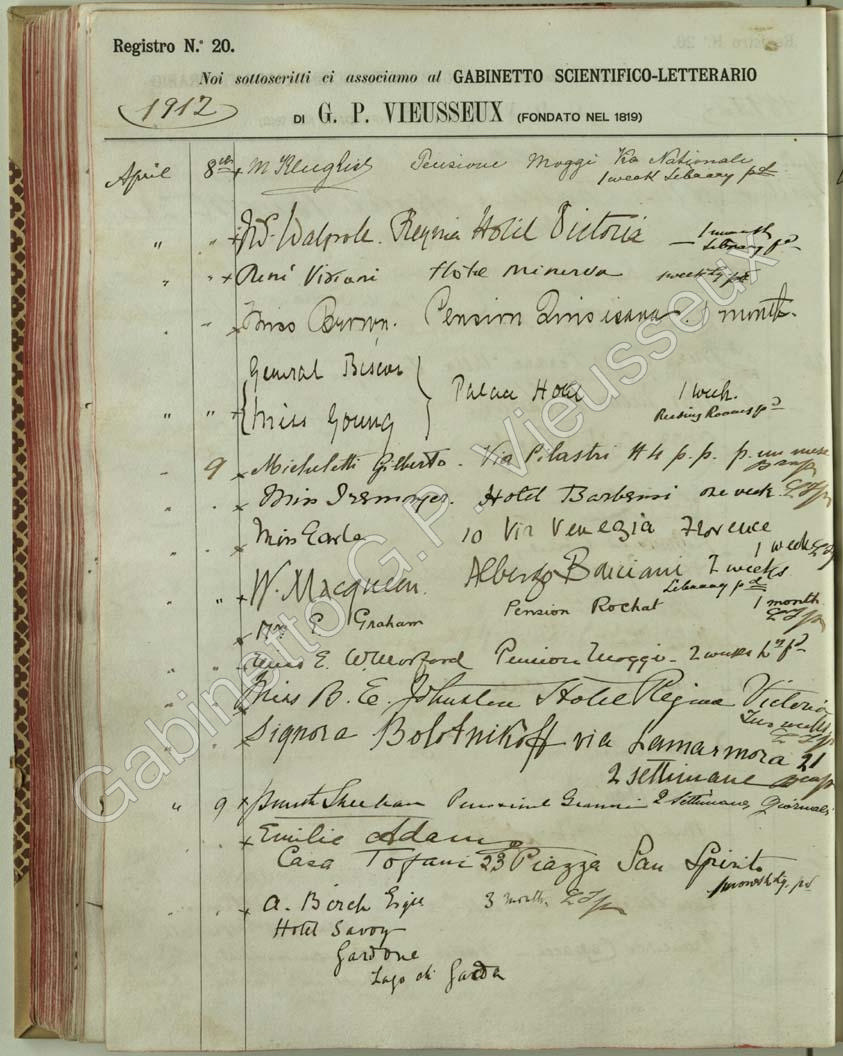 Registro N.° 20.
Noi sottoscritti ci associamo al GABINETTO SCIENTIFICO-LETTERARIO
1912
DI G. P. VIEUSSEUX (FONDATO NEL 1819)
April 8 Pensione Moggi Via Nazionale
1 week Library pd
" " Walpole. Regina Hotel Victoria 1 month
Library pd
" " René Viviani Hôtel Minerva
" " Miss Brown. Pension Quisisana. 1 month.
General
Palace Hotel 1 week.
" " Miss Young Reading Rooms pd
" 9 Micheletti Gilberto. Via Pilastri 44 p. p. p. un mese
" " Miss Hotel one week
" " Miss Earle 10 Via Venezia Florence
1 week
" " W. Macqueen. Alberto 2 weeks
Library pd
E. Graham Pension Rochat 1 month
" " Miss E. Pension Moggi - 2 weeks
" " Miss B. E. Johnston Hotel Regina Victoria
Two weeks
" " Signora Bolotnikoff via Lamarmora 21
2 settimane
" 9 Pensione 2 settimane, Giornali
" " Emilie Adam
Casa Tofani 23 Piazza San Spirito
" " A. Birch 3 month
Hotel Savoy
Gardone
Lago di Garda
Gabinetto G.P. Vieusseux